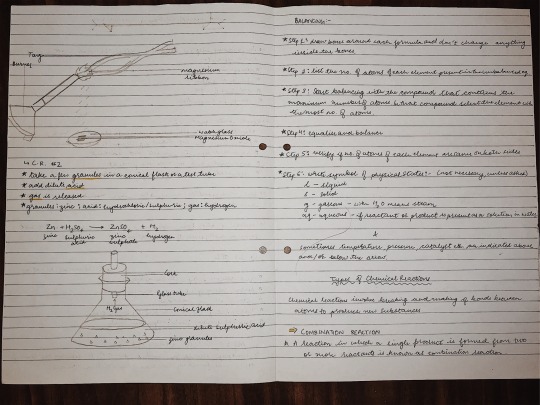 Tong
Burner
magnesium
ribbon
watch glass
Magnesium Oxide
C.R. #2
* take a few granules in a conical flask or a test tube
* add dilute acid
* gas is released
* granules: zinc; acid: hydrochloric/sulphuric; gas: hydrogen
Zn + H₂SO₄ → ZnSO₄ + H₂
zinc sulphuric zinc hydrogen
acid sulphate
Cork
Glass tube
H₂ gas
Conical flask
dilute sulphuric acid
zinc granules
BALANCING:-
* Step 1: draw boxes around each formula and don't change anything
inside the boxes
* Step 2: list the no. of atoms of each element present in the unbalanced eq.
* Step 3: Start balancing with the compound that contains the
maximum number of atoms & that compound select the element with
the most no. of atoms
* Step 4: equalise and balance
* Step 5: verify if no. of atoms of each element are same on both sides
* Step 6: write symbol of physical states:- (not necessary, unless asked)
l - liquid
s - solid
g - gaseous - with H₂O means steam,
aq - aqueous - if reactant or product is present as a solution in water
sometimes temperature, pressure, catalyst etc are indicated above
and/or below the arrow
Types of Chemical Reactions
chemical reaction involves breaking and making of bonds between
atoms to produce new substances
⇒ COMBINATION REACTION
A. A reaction in which a single product is formed from two
or more reactants is known as combination reaction